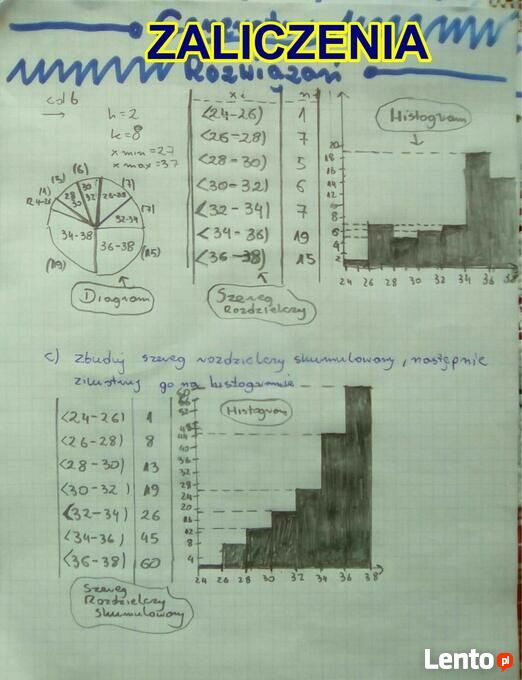 ZALICZENIA
Rozwiązań
cd b
h=2
k=8
x min = 27
x max = 37
(19) (1) (3) (6) (7) (7) (15)
24-26 28-30 30-32 26-28 32-34
34-38 36-38
Diagram
xi n
<24-26) 1
<26-28) 7
<28-30) 5
<30-32) 6
<32-34) 7
<34-36) 19
<36-38) 15
Szereg
Rozdzielczy
Histogram
20
18
16
14
12
10
8
6
4
2
24 26 28 30 32 34 36 38
c) zbuduj szereg rozdzielczy skumulowany, następnie
zilustruj go na histogramie
<24-26) 1
<26-28) 8
<28-30) 13
<30-32) 19
<32-34) 26
<34-36) 45
<36-38) 60
Szereg
Rozdzielczy
skumulowany
Histogram
60
56
52
48
44
40
36
32
28
24
20
16
12
8
4
24 26 28 30 32 34 36 38
Lento.pl